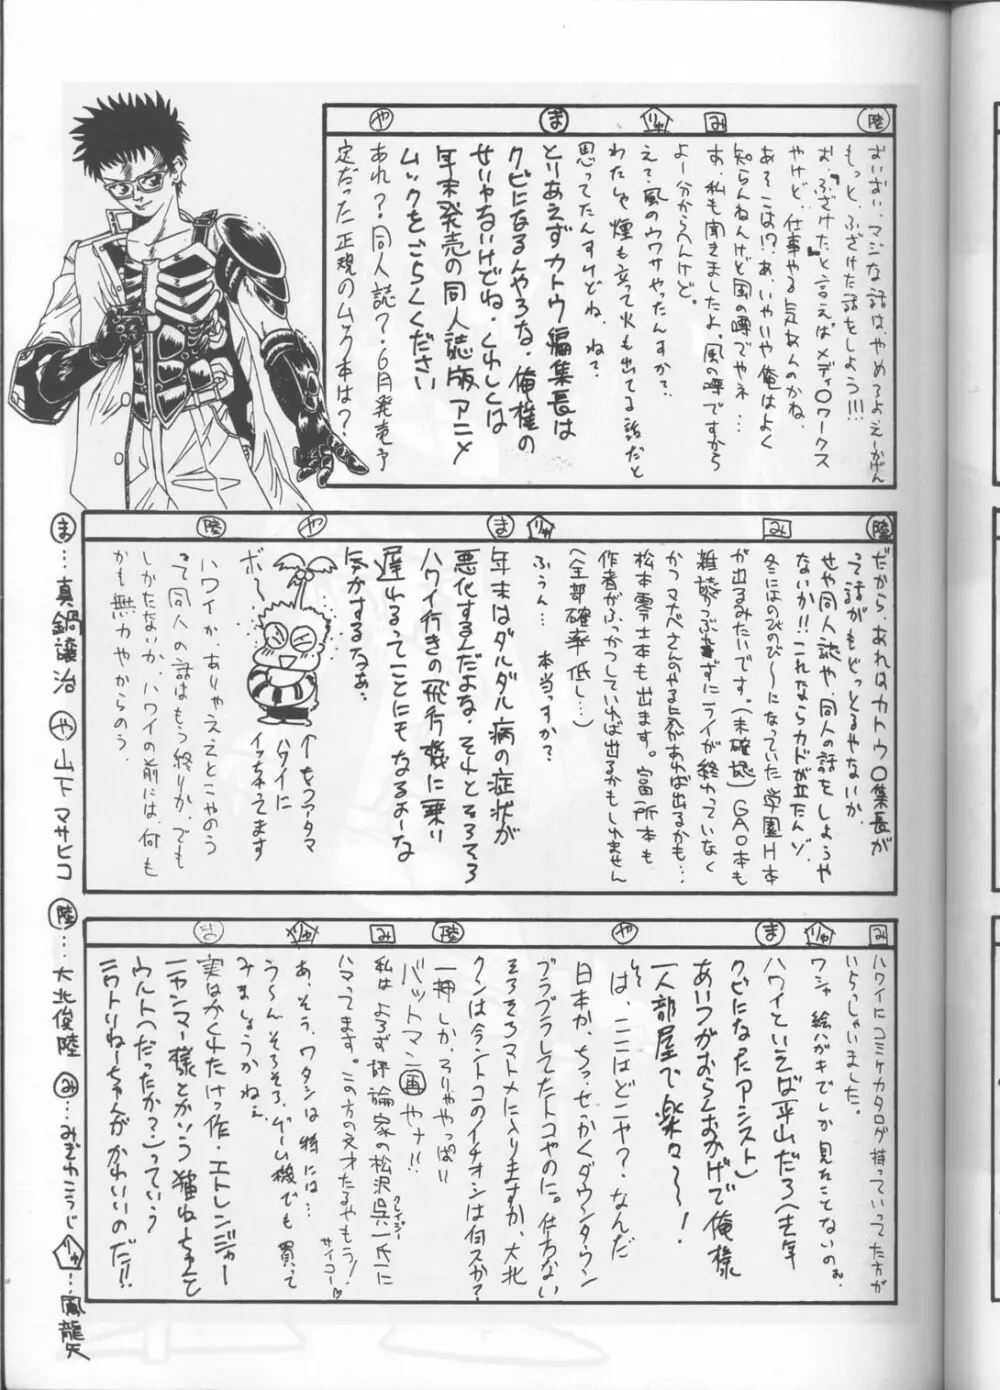 陸
おいおい、マジな話は、やめろよえーかげん
もっと、ふざけた話をしよう!!!
お、『ふざけた』と言えばメディ○ワークス
やけど、仕事やる気あんのかね、
あそこは!?あ、いやいや俺はよく
知らんねんけど風の噂でやネ…
み
あ、私も聞きましたよ。風の噂ですから
よー分からへんけど。
りゅ
え?風のウワサやったんすか?
わたしゃ煙も立って火も出てる話だと
思ってたんすけどね、ねて?
ま
とりあえずカトウ編集長は
クビになるんやろな、俺様の
せいやないけどね。くわしくは
年末発売の同人誌版アニメ
ムックをごらくください
や
あれ?同人誌?6月発売予
定だった正規のムック本は?
陸
だから、あれはカトウ○集長が
って話がもどっとるやないか、
せや同人誌や、同人の話をしようや
ないか!!これならカドが立たんゾ、
み
冬にはのびのび〜になっていた学園H本
が出るみたいです。(未確認)GAO本も
雑誌つぶれずにライが終わっていなく
かつマナベさんのやる気があれば出るかも…
松本零士本も出ます。富所本も
作者がふっかつしていれば出るかもしれません
(全部確率低し…)
りゅ
ふぅん… 本当っすか?
ま
年末はダルダル病の症状が
悪化するんだよな、それとそろそろ
ハワイ行きの飛行機に乗り
遅れるってことにもなるよーな
気がするなぁ…
や
ボ〜
←もうアタマ
ハワイに
イっちゃってます
陸
ハワイか、ありゃええとこやのう
って同人の話はもう終りか、でも
しかたないか、ハワイの前には、何も
かも無力やからのう
み
ハワイにコミケカタログ持っていってた方が
いらっしゃいました。
りゅ
ワシャ絵ハガキでしか見たことないのぉ、
ま
ハワイといえば平山だろ(去年
クビになったアシスト)
あいつがおらんおかげで俺様
一人部屋で楽々〜!
や
は、ここはどニヤ?なんだ
日本か、ちっ、せっかくダウンタウン
ブラブラしてたトコやのに。仕方ない
そろそろマトメに入りますか、大北
クンは今ントコのイチオシは何スか?
陸
一押しか、そりゃやっぱり
バットマン画やナ!!
み
私はよろず評論家の松沢呉一氏に
クレイジー
ハマってます。この方の文才たるやもう!
サイコー♡
りゅ
あ、そう、ワタシは特には…
うーん、そろそろ、ゲーム機でも買って
みましょうかねぇ
ま
実はかくれたけっ作・エトレンジャー
ニャンマー様とかいう猫ねーちゃんと
ウルト(だったか?)っていう
ニワトリねーちゃんがかわいいのだ!!
ま…真鍋譲治 や山下マサヒコ 陸…大北俊陸 み…みぞれこうじ りゅ…鳳龍矢